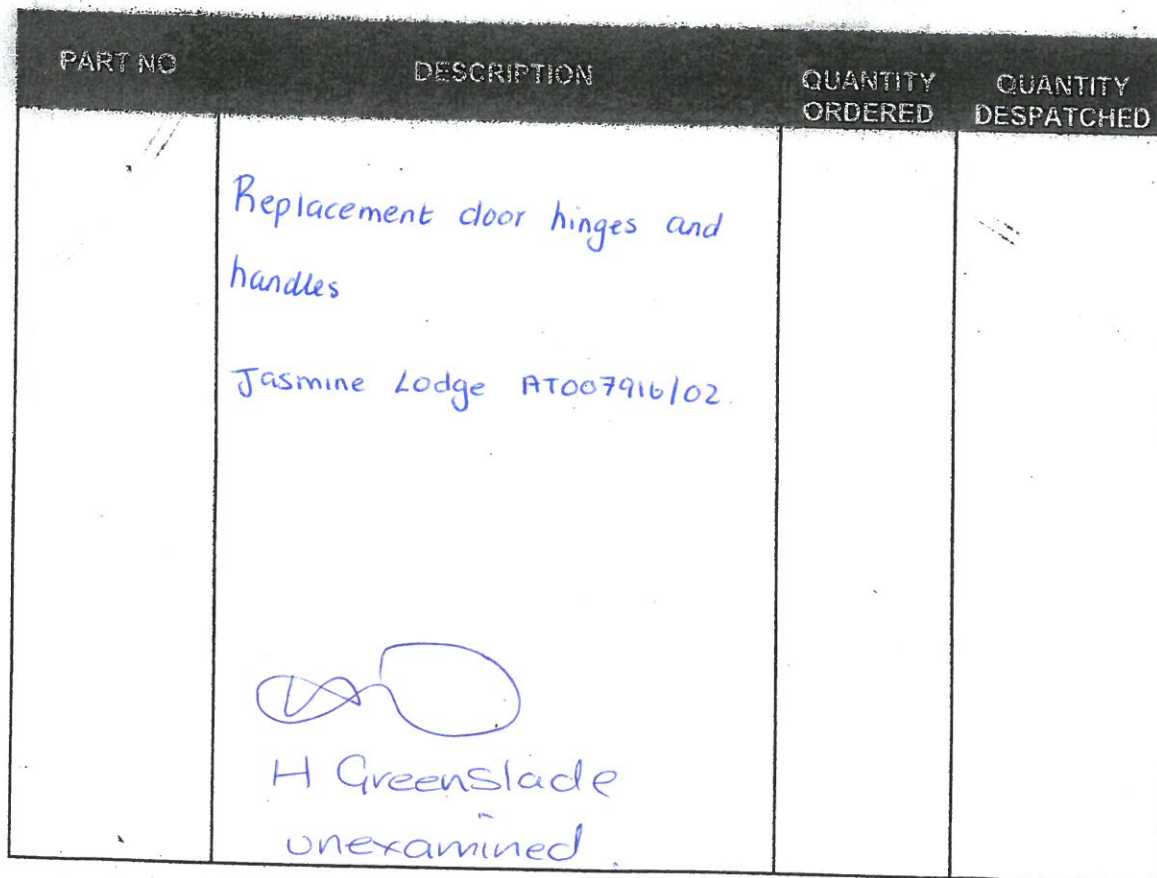 PART NO
DESCRIPTION
QUANTITY ORDERED
QUANTITY DESPATCHED
Replacement door hinges and
handles
Jasmine Lodge AT007916/02.
H Greenslade
unexamined.